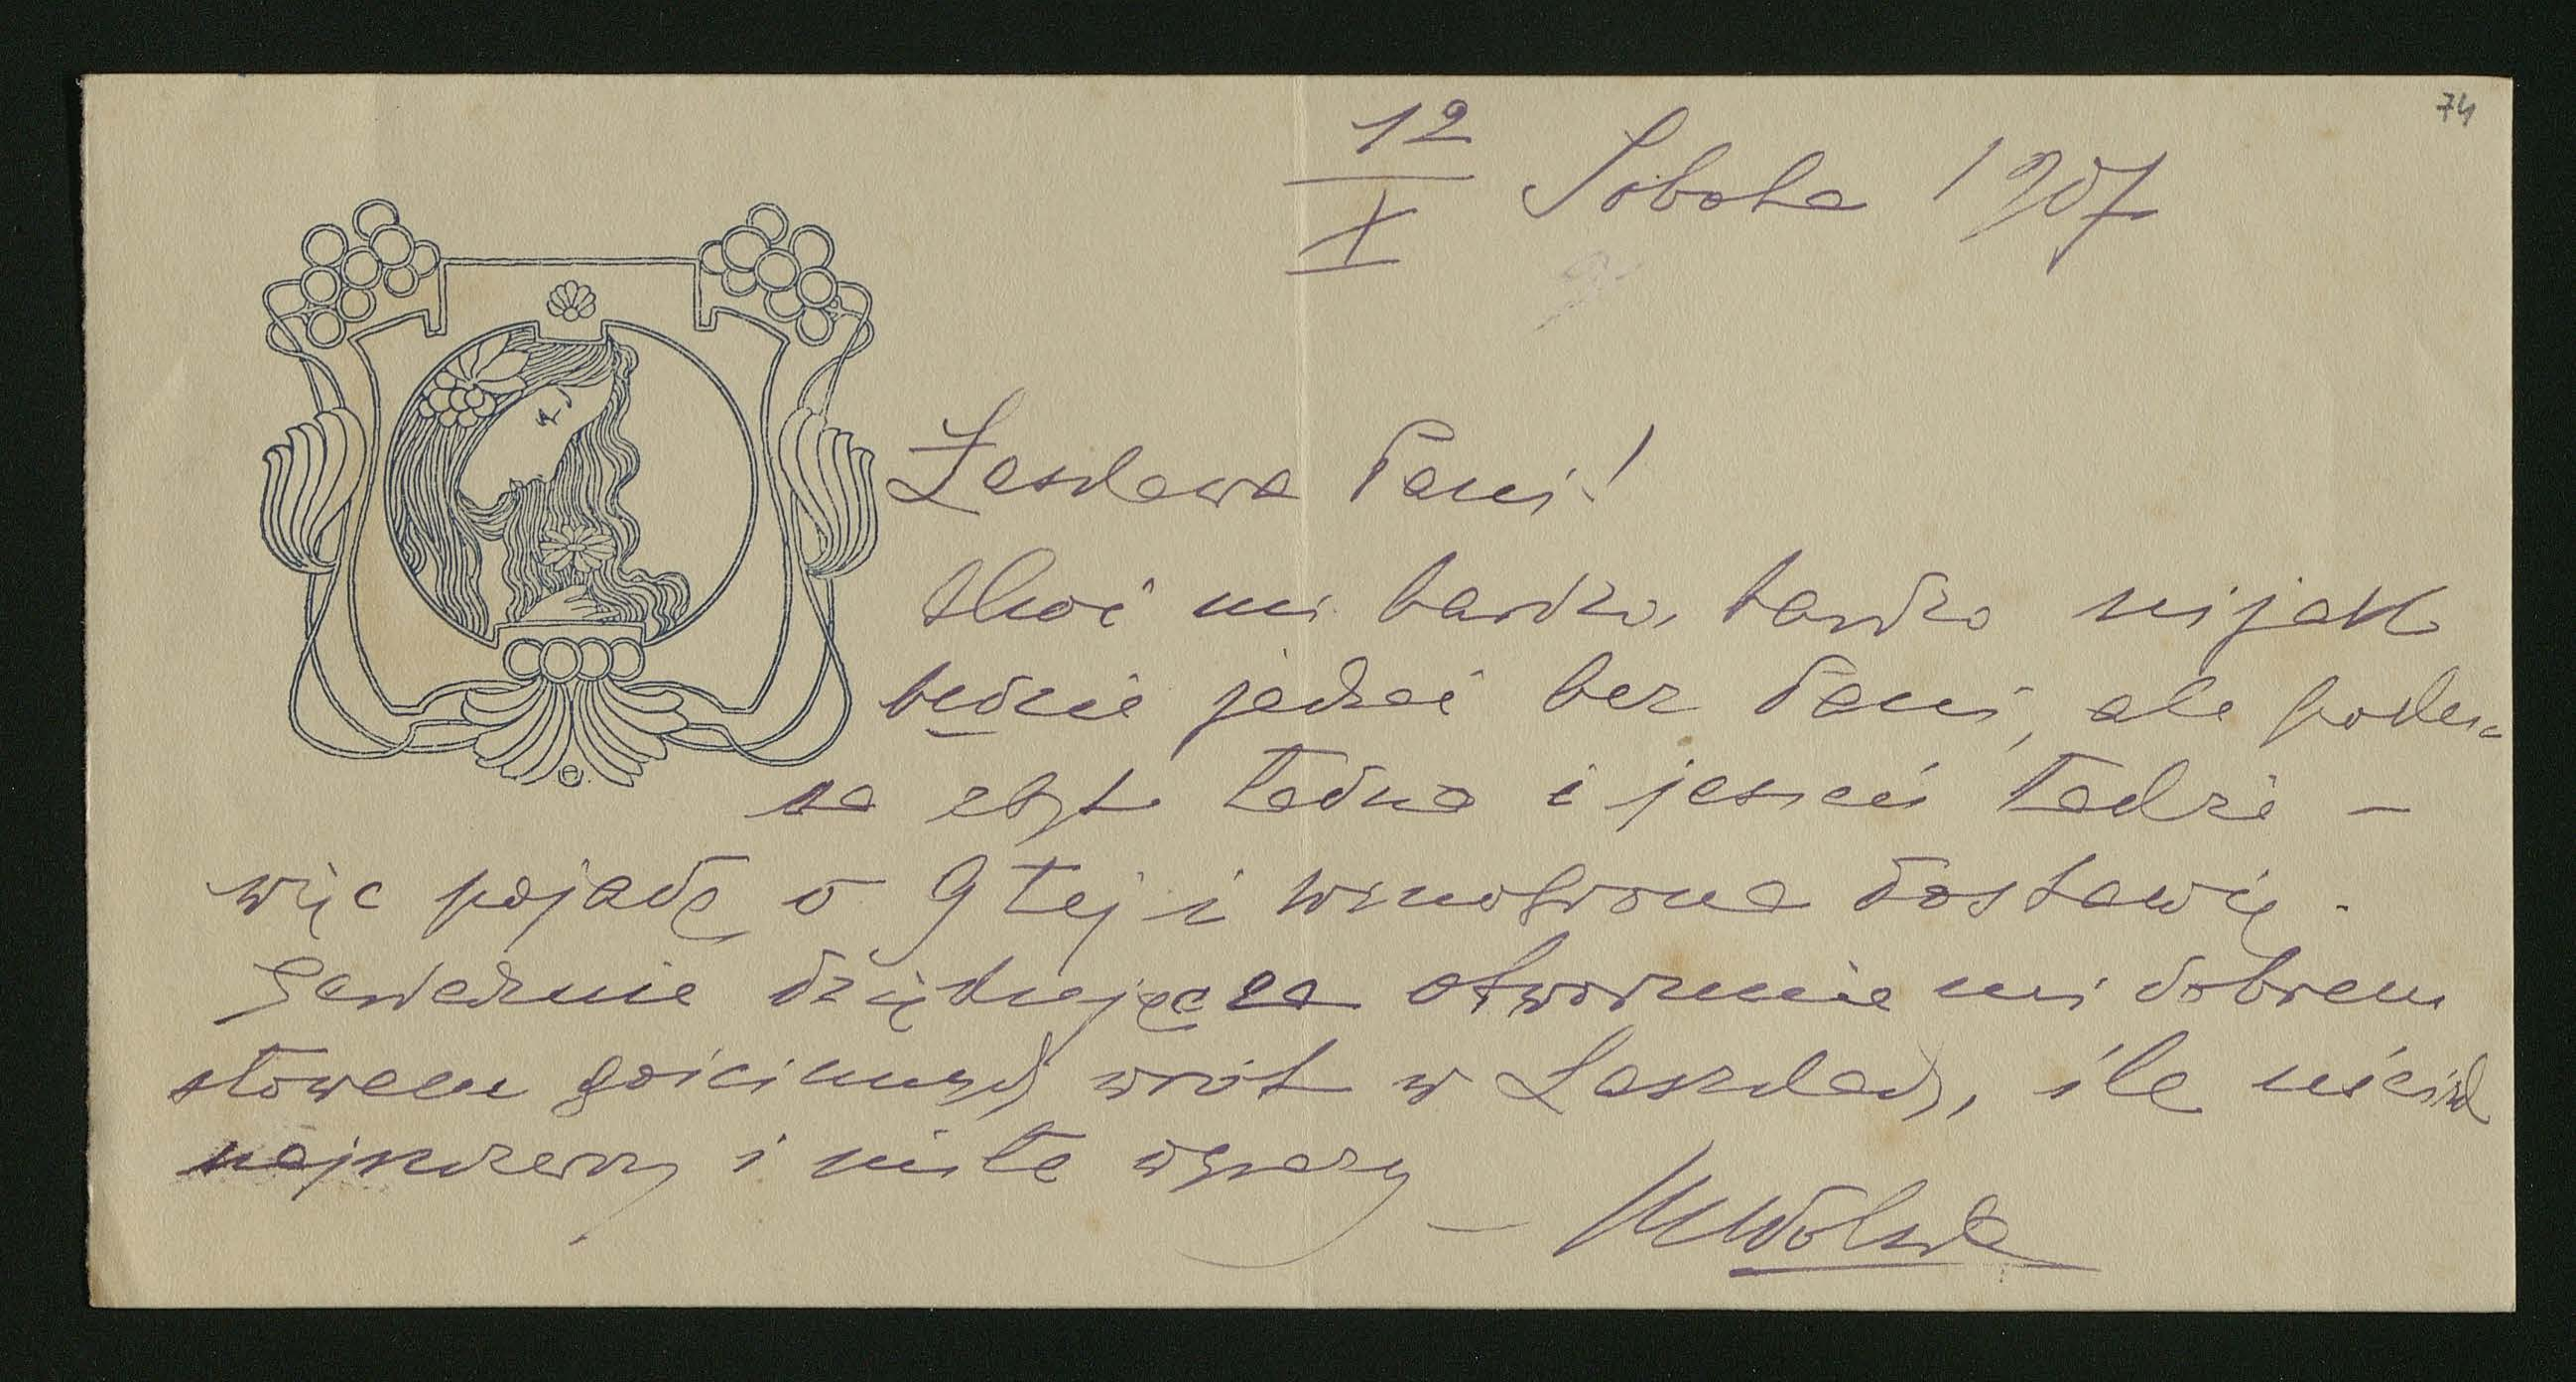 74
12/X Sobota 1907
Łaskawa Pani!
Choć mi bardzo, bardzo nijako
będzie jechać bez Pani, ale
za zbyt ładna i jesień ładzi –
więc pojadę o 9 tej i dostawię.
Serdecznie dziękując za otworzenie mi dobrem
słowem gościnnych wrót w Laszkach, ile
najszczerszy i miłe wyrazy –
MWolska